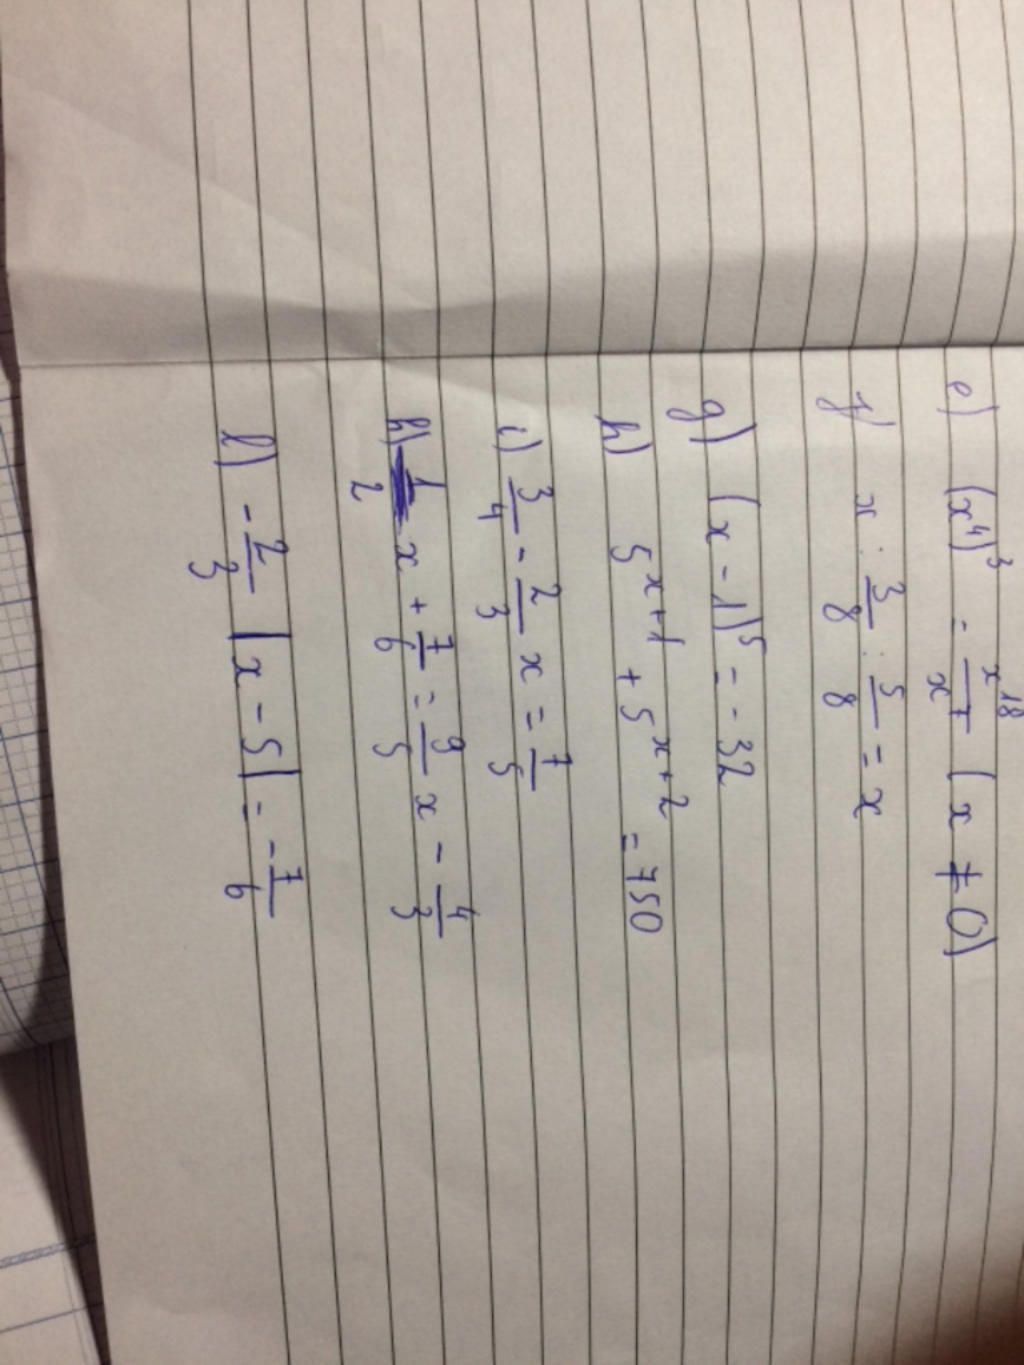 e) (x⁴)³ = x¹⁸/x⁷ (x ≠ 0)
f) x : 3/8 : 5/8 = x
g) (x - 1)⁵ = - 32
h) 5ˣ⁺¹ + 5ˣ⁺² = 750
i) 3/4 - 2/3 x = 7/5
k) 1/2 x + 7/6 = 9/5 x - 4/3
l) - 2/3 |x - 5| = - 7/6